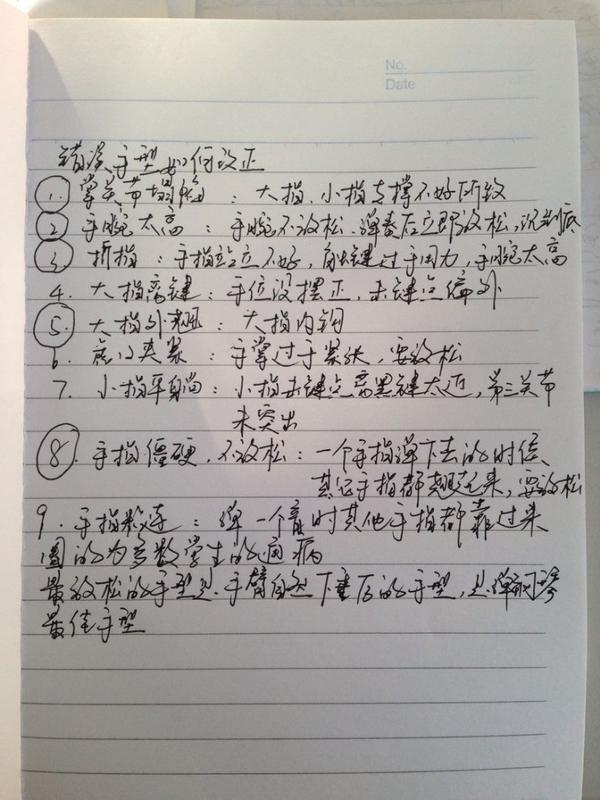 No.
Date
错误手型如何改正
1. 掌关节塌陷：大指、小指支撑不好所致
2 手腕太高：手腕不放松，弹奏后立即放松，沉到底
3. 折指：手指站立不好，触键过于用力，手腕太高
4. 大指离键：手位没摆正，击键点偏外
5. 大指外翘：大指内钩
6. 虎口夹紧：手掌过于紧张，要放松
7. 小指平躺：小指击键点离黑键太近，第三关节
未突出
8. 手指僵硬，不放松：一个手指弹下去的时候、
其它手指都翘起来，要放松
9. 手指粘连：弹一个音时其他手指都靠过来
圈的为多数学生的病
最放松的手型是，手臂自然下垂后的手型，是弹钢琴
最佳手型